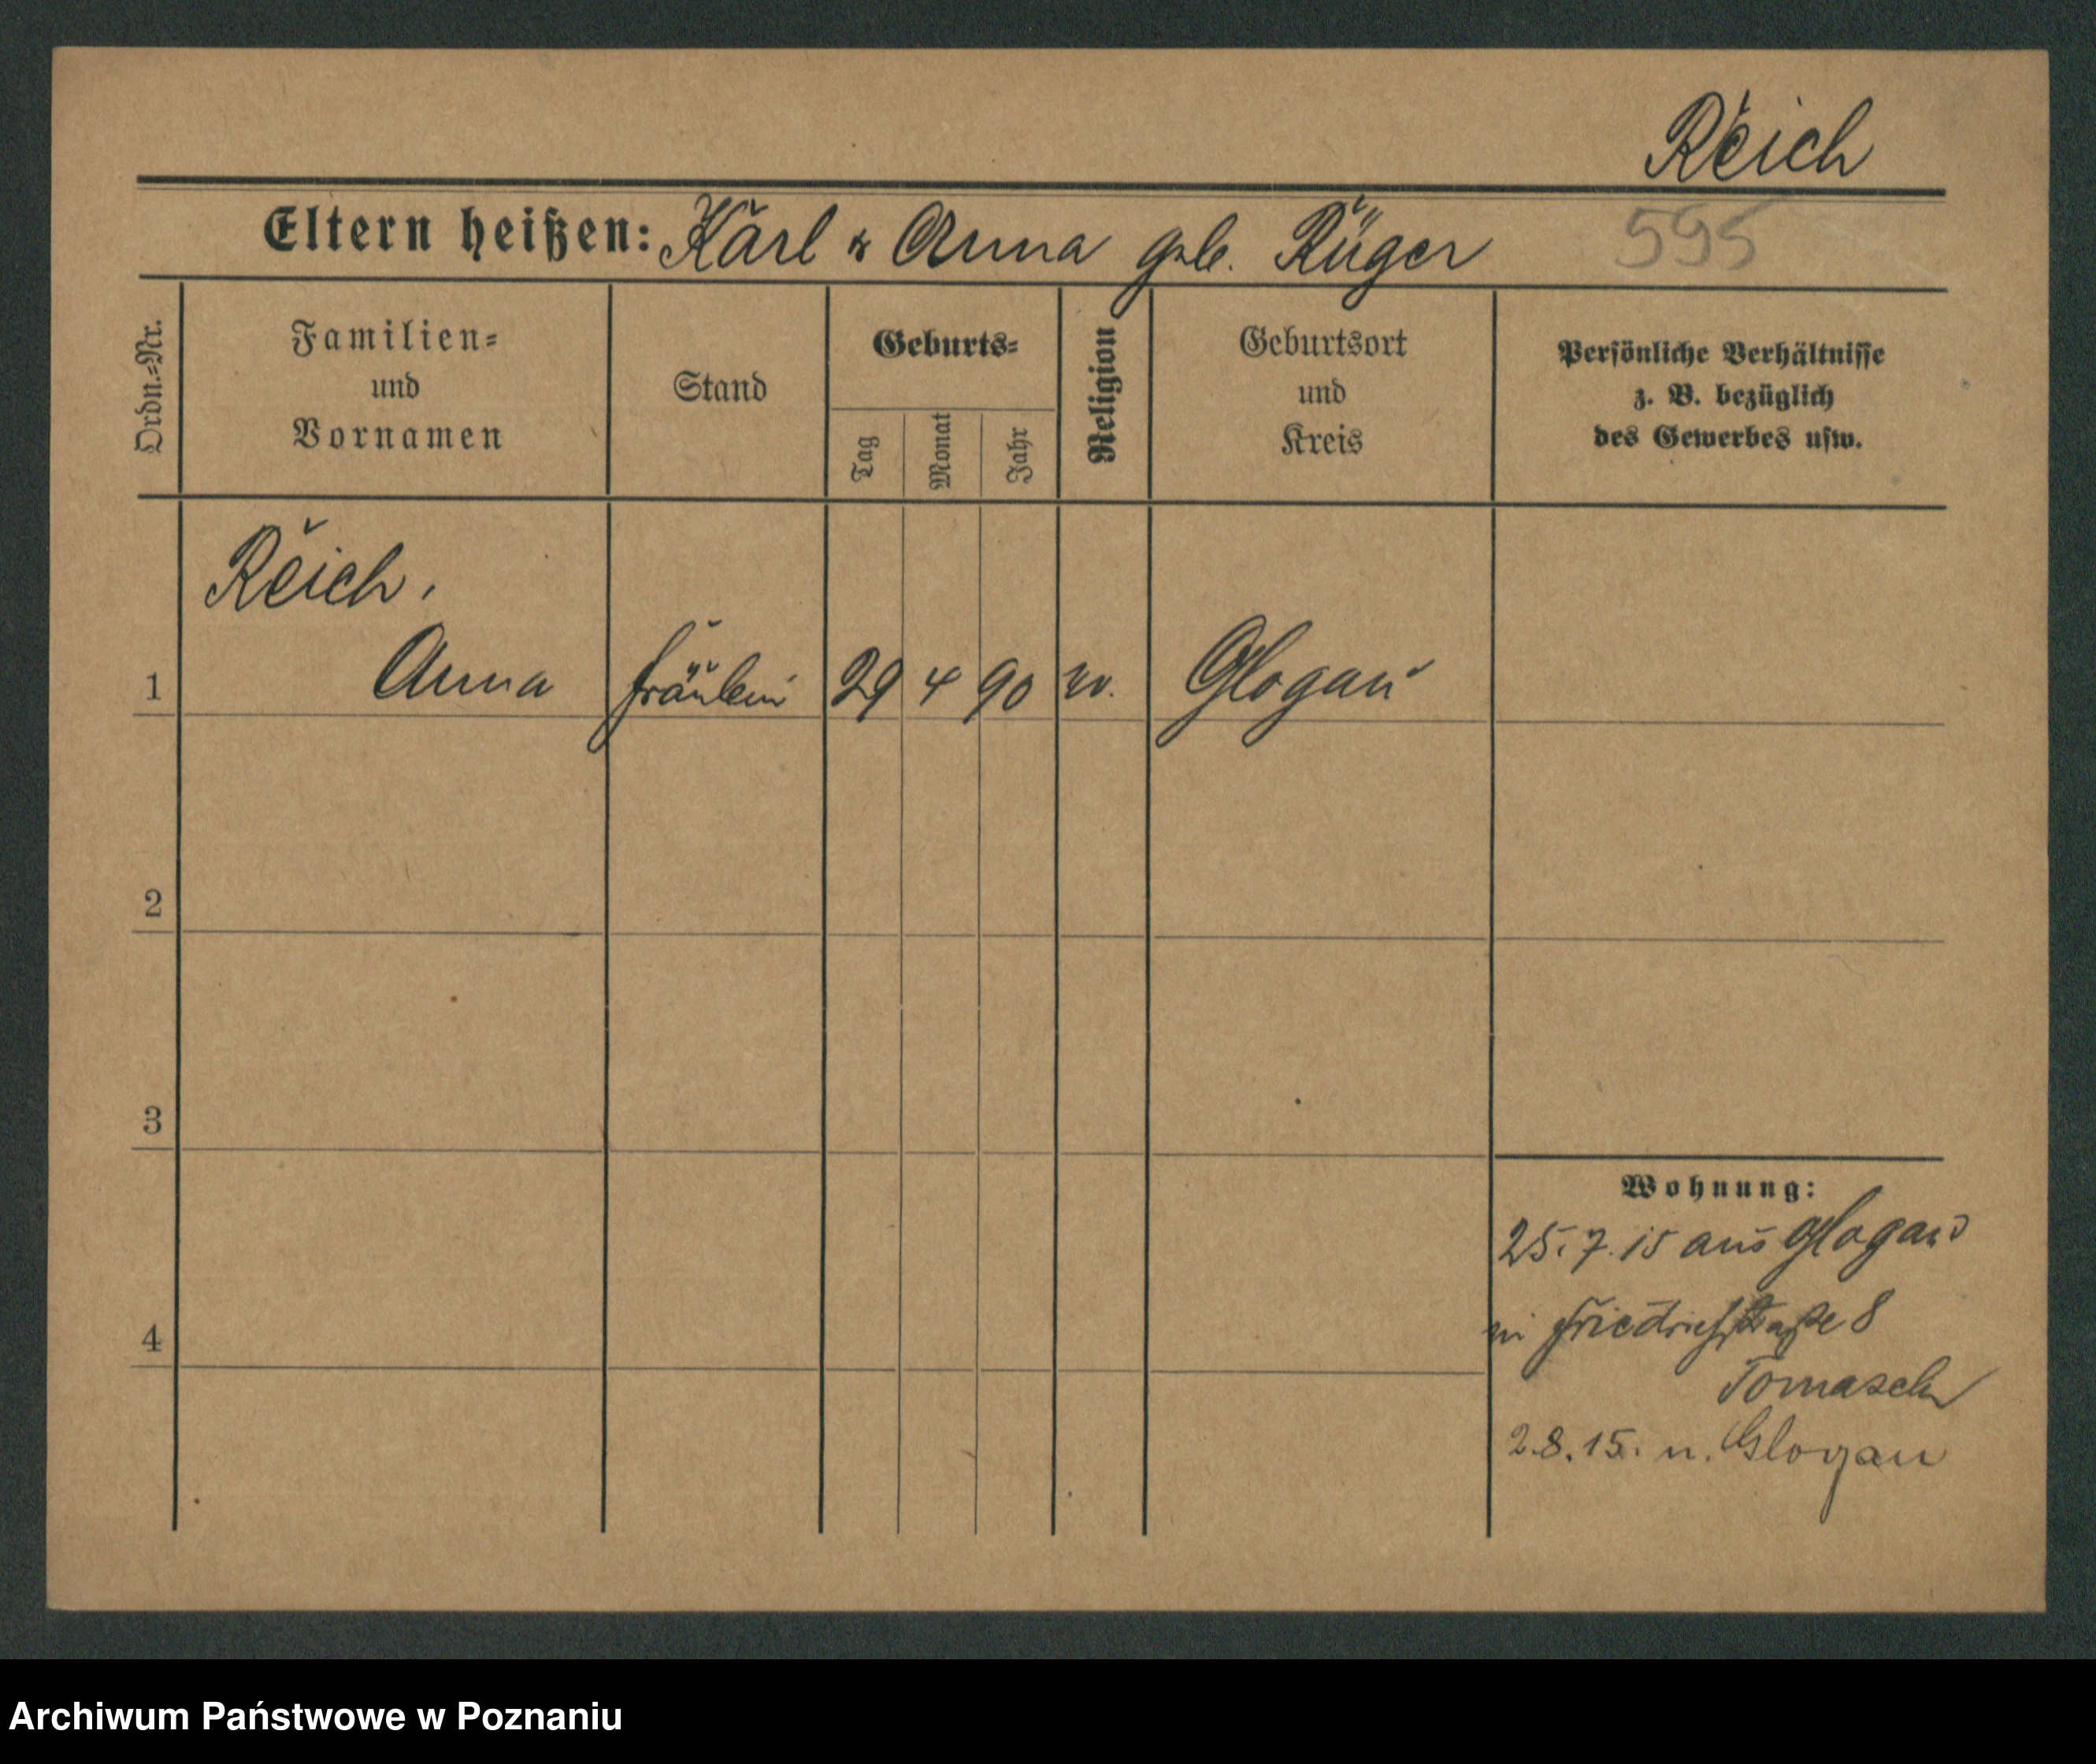 Reich
Eltern heißen: Karl & Anna geb. Rüger
595
Ordn.-Nr.
Familien-
und
Vornamen
Stand
Geburts-
Tag
Monat
Jahr
Religion
Geburtsort
und
Kreis
Persönliche Verhältnisse
z. B. bezüglich
des Gewerbes usw.
Reich,
1 Anna Fräulein 29 4 90 ev. Glogau
2
3
4
Wohnung:
25.7.15 aus Glogau
in Friedrichstraße 8
Tomasch
2.8.15. n. Glogau
Archiwum Państwowe w Poznaniu